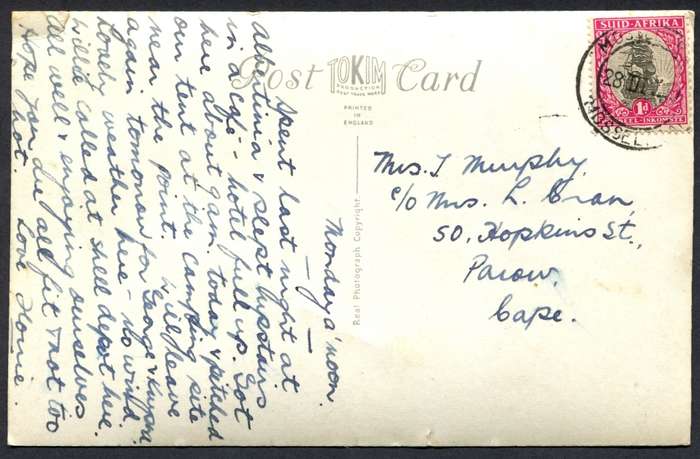 Post Card
TOKIM
PRODUCTION
PRINTED
IN
ENGLAND
Real Photograph Copyright.
SUID-AFRIKA
28 DE
1d
POSSEEL-INKOMSTE
MOSSELBAAI
Monday a'noon.
Spent last night at
Albertinia & slept upstairs
in a café - hotel full up. Got
here about 9 am today & pitched
our tent at the camping site
near the point. Will leave
again tomorrow for George & Knysna
Lovely weather here - no wind.
Willie called at Shell depot here.
All well & enjoying ourselves
Hope you are all fit & not too
hot. Love Flome.
Mrs. T Murphy,
c/o Mrs. L. Cran,
50, Hopkins St.,
Parow,
Cape.